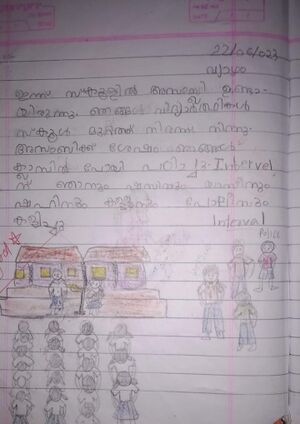 22/06/2023
വ്യാഴം
ഇന്ന് സ്കൂളിൽ അസംബ്ലി ഉണ്ടാ
യിരുന്നു. ഞങ്ങൾ വിദ്യാർത്ഥികൾ
സ്കൂൾ മുറ്റത്ത് നിരന്നു നിന്നു.
അസംബ്ലിക്ക് ശേഷം ഞങ്ങൾ
ക്ലാസിൽ പോയി പഠിച്ചു. Intervel
ന് ഞാനും
കള്ളനും പോലീസും
കളിച്ചു Interval
Police